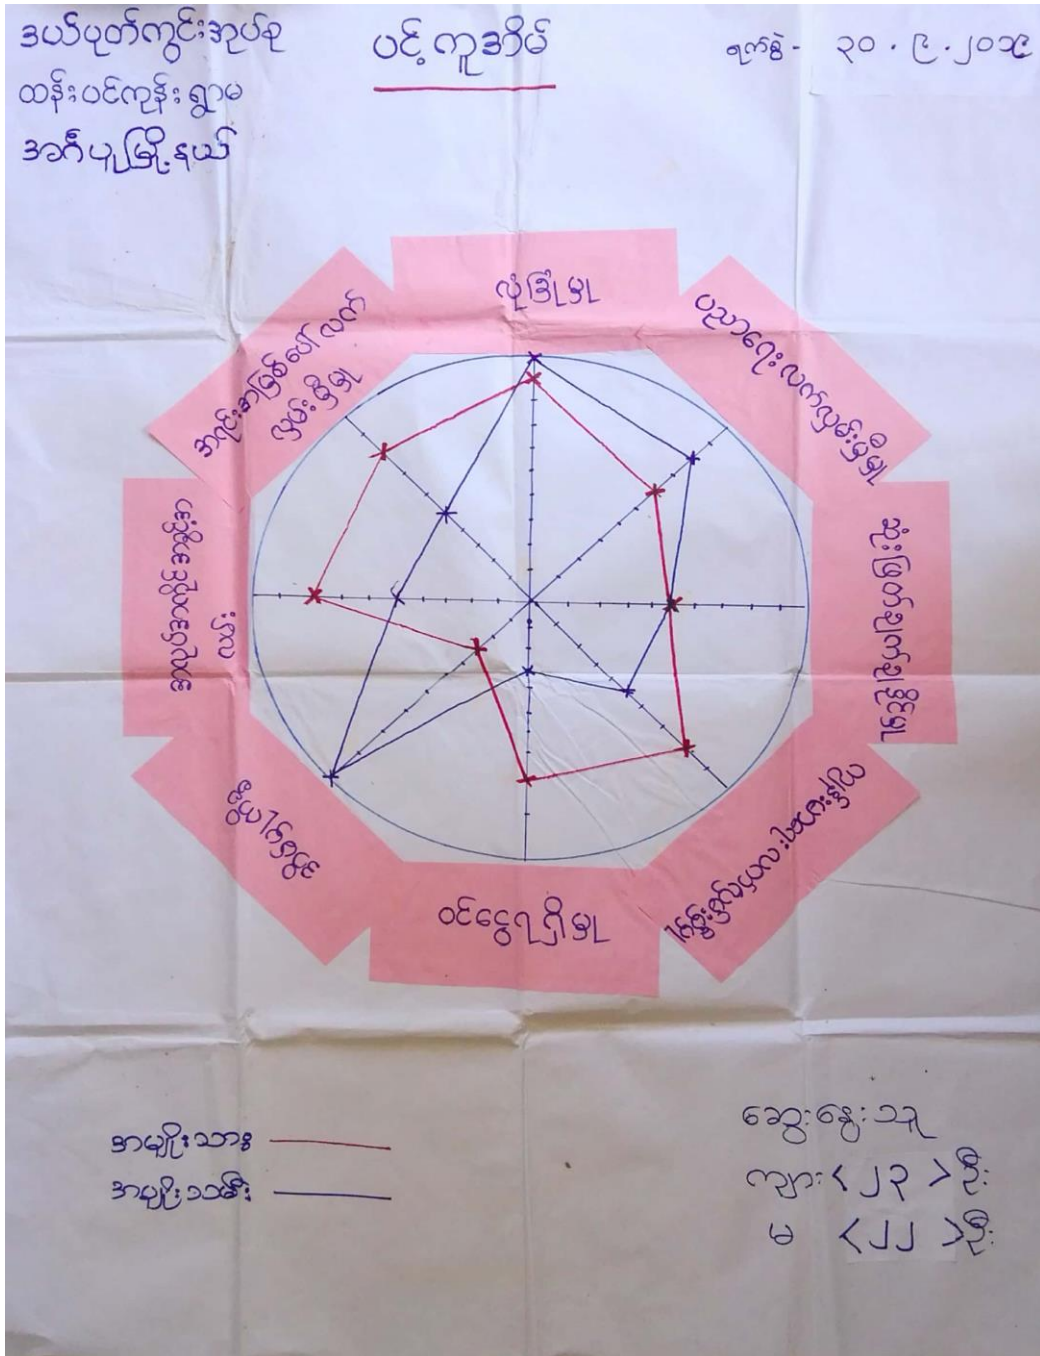 ဒယ်ပုတ်ကွင်းအုပ်စု
ထန်းပင်ကုန်းရွာမ
အင်္ဂပူမြို့နယ်
ပင့်ကူအိမ်
ရက်စွဲ - ၃၀.၉.၂၀၁၉
လုံခြုံမှု
ပညာရေးလက်လှမ်းမှီမှု
ဆုံးဖြတ်ချက်ချနိုင်မှု
ဝင်ငွေရရှိမှု
အရင်းအမြစ်ပေါ် လက်
လှမ်းမှီမှု
အမျိုးသား
အမျိုးသမီး
ဆွေးနွေးသူ
ကျား < ၂၃ > ဦး
မ < ၂၂ > ဦး